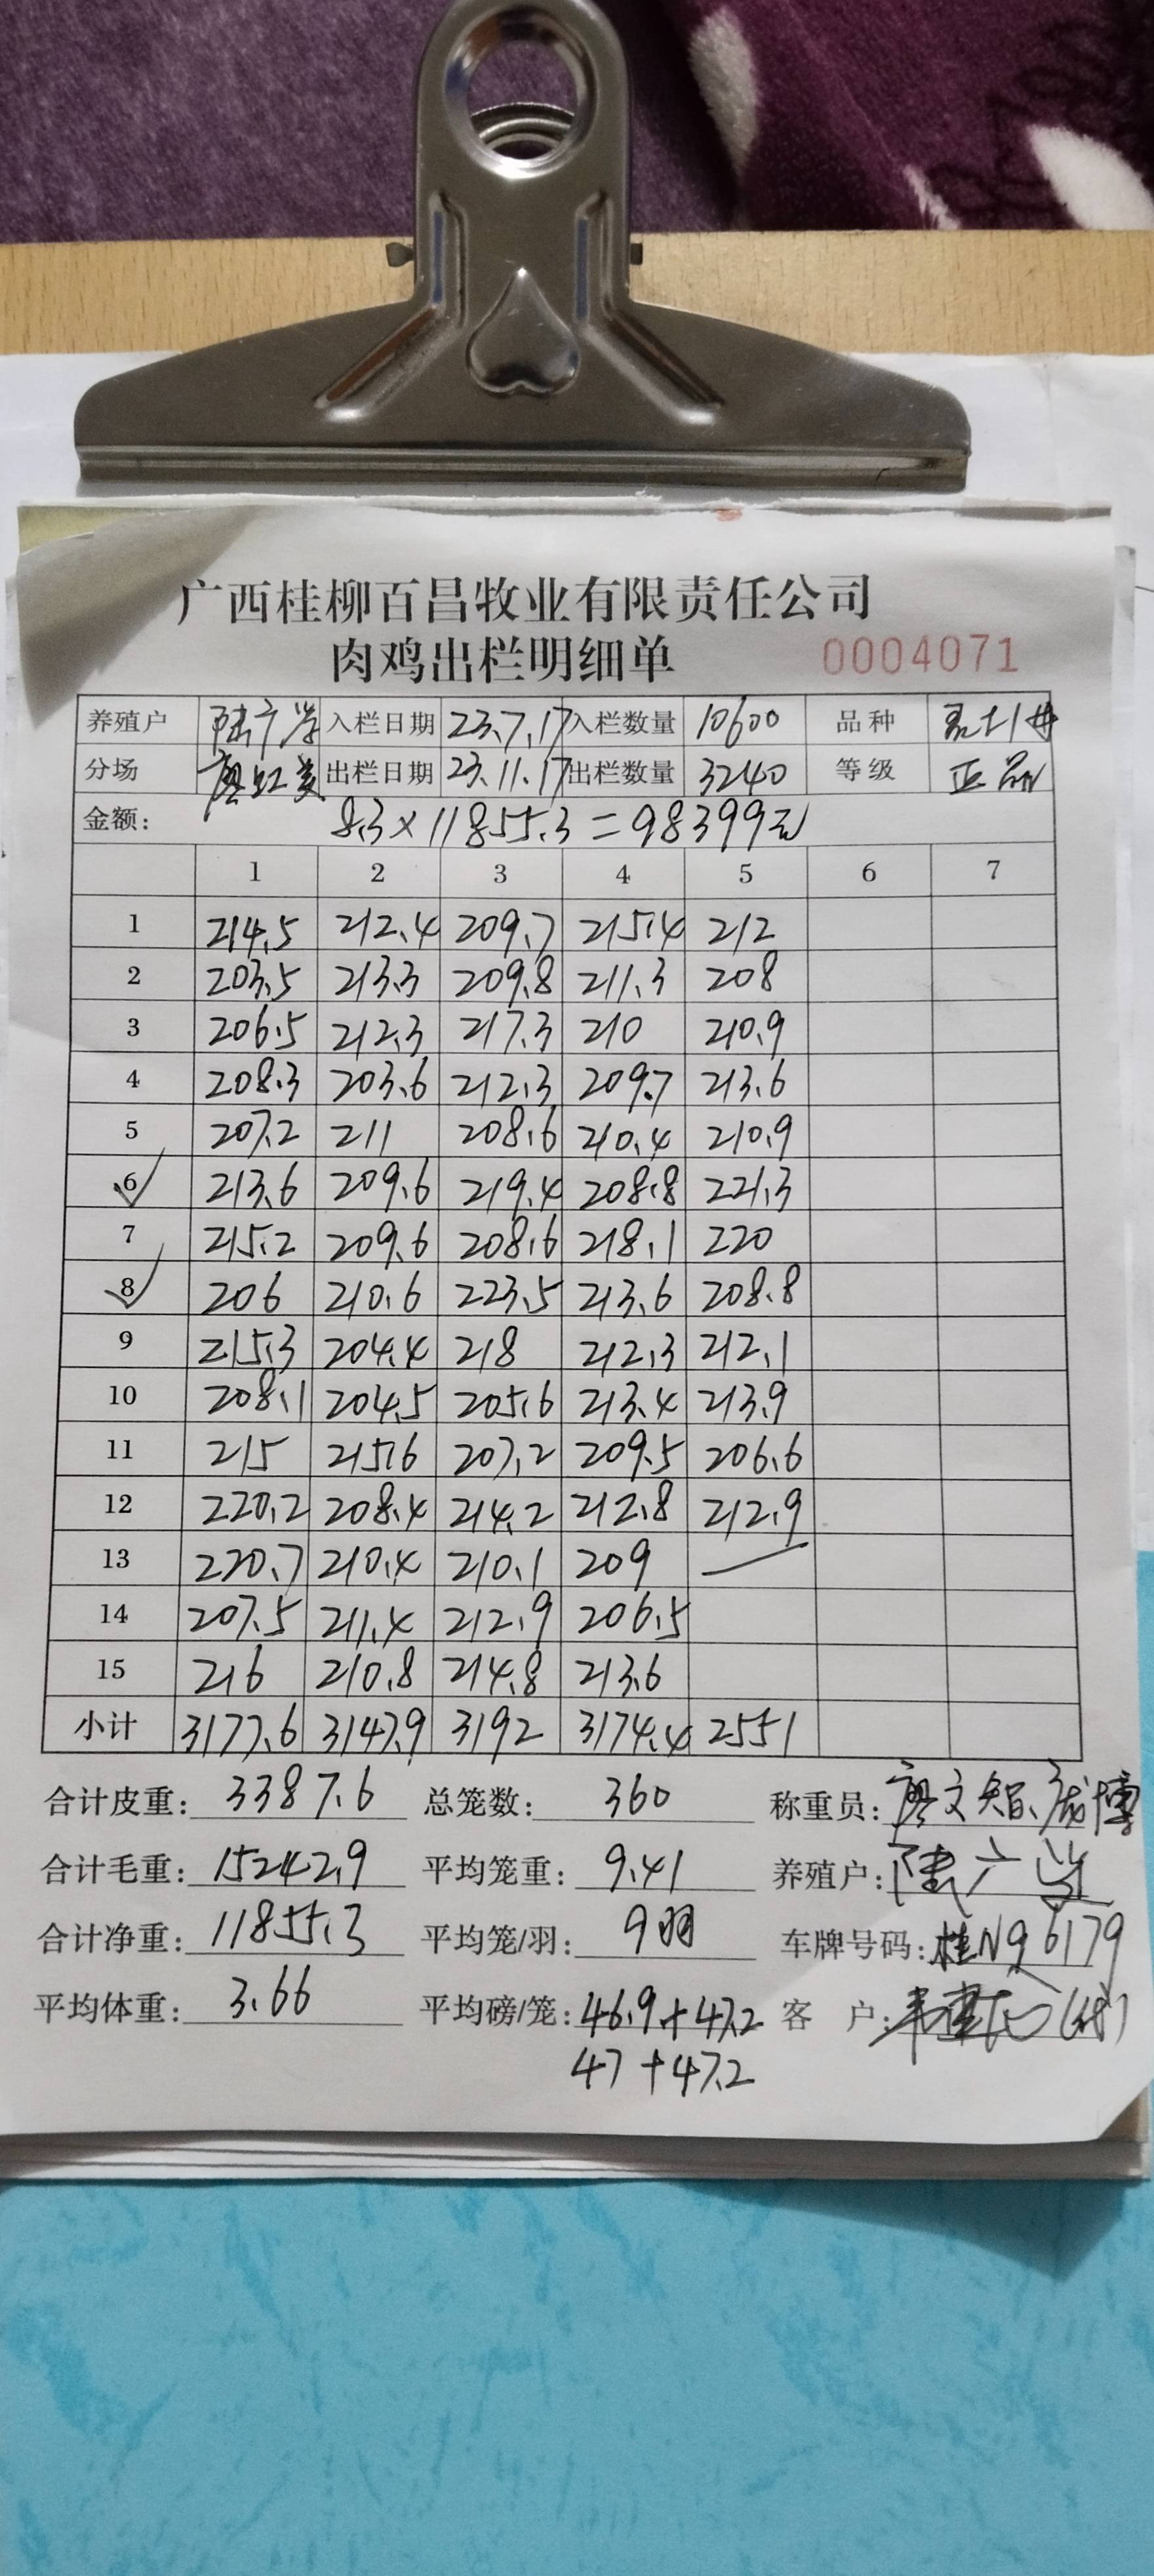 广西桂柳百昌牧业有限责任公司
肉鸡出栏明细单 0004071
养殖户 陆广学 入栏日期 23.7.17 入栏数量 10600 品种
分场 廖虹美 出栏日期 23.11.17 出栏数量 3240 等级 正品
金额: 8.3×11855.3=98399元
1 2 3 4 5 6 7
1 214.5 212.4 209.7 215.4 212
2 203.5 213.3 209.8 211.3 208
3 206.5 212.3 217.3 210 210.9
4 208.3 203.6 212.3 209.7 213.6
5 207.2 211 208.6 210.4 210.9
6 213.6 209.6 219.4 208.8 221.3
7 215.2 209.6 208.6 218.1 220
8 206 210.6 223.5 213.6 208.8
9 215.3 204.4 218 212.3 212.1
10 208.1 204.5 205.6 213.4 213.9
11 215 215.6 207.2 209.5 206.6
12 220.2 208.4 214.2 212.8 212.9
13 220.7 210.4 210.1 209
14 207.5 211.4 212.9 206.5
15 216 210.8 214.8 213.6
小计 3177.6 3147.9 3192 3174.4 2551
合计皮重: 3387.6 总笼数: 360 称重员: 廖文智、庞博
合计毛重: 15242.9 平均笼重: 9.41 养殖户: 陆广学
合计净重: 11855.3 平均笼/羽: 9羽 车牌号码: 桂NQ6179
平均体重: 3.66 平均磅/笼: 46.9+47.2 客 户:
47+47.2